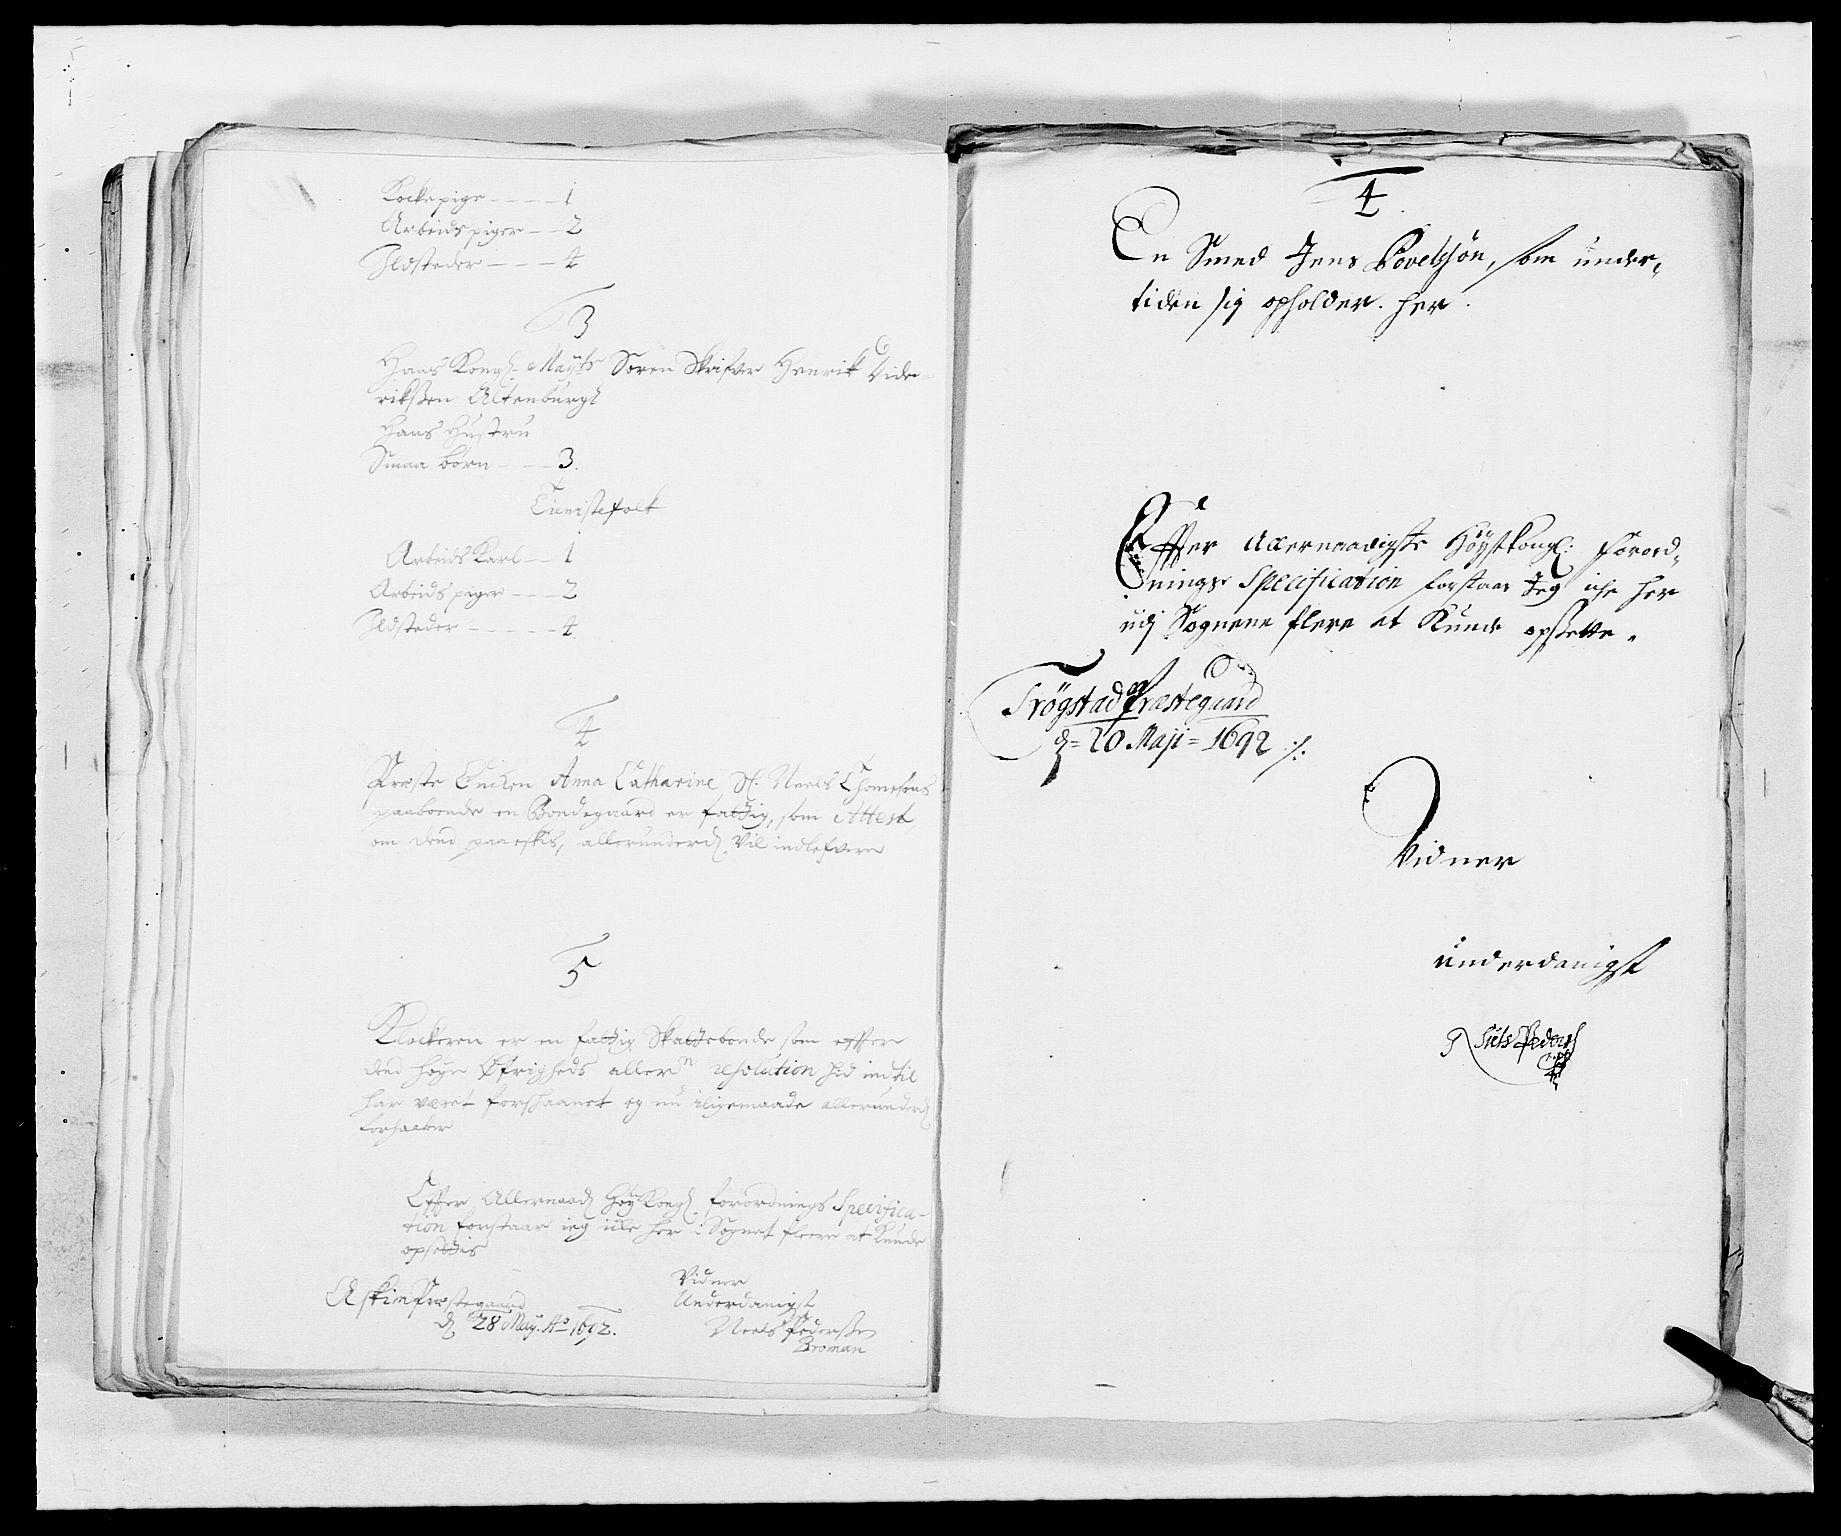 Kockepige - - - - 1
Arbeids piger - - 2
Ildsteder - - - - 4
3
Hans Kongl. Mayts Soren Skrifver Henrik Dide-
riksen Altenburgh
Hans Hustru
Smaa børn - - - 3.
Tienistefolk
Arbeids Karl - - 1
Arbeids piger - - - 2
Ildsteder - - - - - 4.
4
Præste Enken Anna Catharine, Sl: Neels Thomesens
paaboende en Bondegaard er fattig, som Attest
om dend paaeskis, allerunderd. Vil indlefvere
5
Klockeren er en fattig Skattebonde som effter
dend høye Øfrigheds allern resolution hid indtil
har været forskaanet og nu iligemaade allerunderd
forhaaber
Effter Allernaad. Høy Kongl. forordnings Specifica-
tion forstaar ieg icke her i Sognet fleere at kunde
opsettis
Askim Præstegaard
d. 28 May. Ao 1692.
Vidner
Underdanigst
Neels Pedersen
Broman
4.
En Smed Jens Povelsøn, som under-
tiden sig opholder her.
Effter Allernaadigste Høystkongl: forord-
nings Specification forstaar Jeg iche her
udj Sognene flere at Kunde opsette.
Trögstad Præstegaard
d= 20 Maji = 1692 ./.
Vidner
underdanigst
Niels Peders